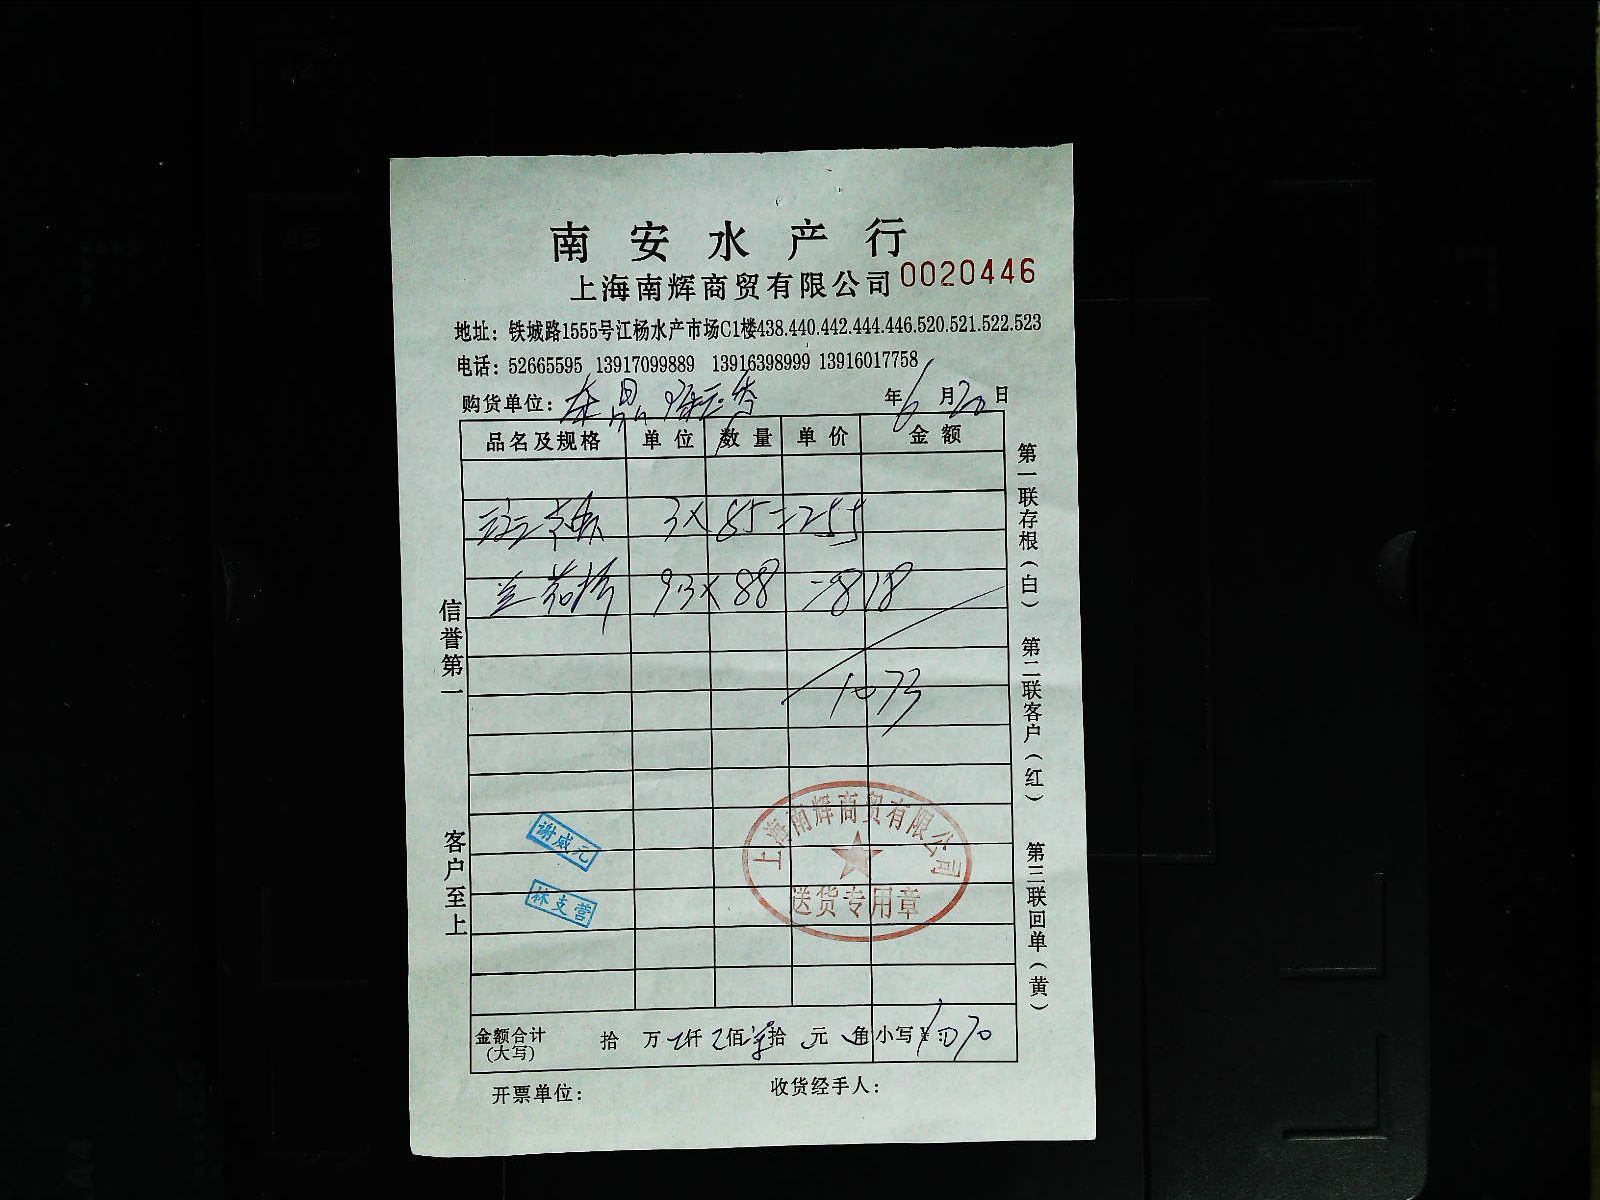 南安水产行
上海南辉商贸有限公司 0020446
地址：铁城路1555号江杨水产市场C1楼438.440.442.444.446.520.521.522.523
电话：52665595 13917099889 13916398999 13916017758
购货单位：
年 6 月 20 日
品名及规格 单位 数量 单价 金额
3 × 85 = 255
9.3 × 88 = 818
1073
上海南辉商贸有限公司
送货专用章
谢威元
林支营
金额合计（大写） 拾 万 仟 佰 拾 元 角 小写 ¥ 1070
开票单位： 收货经手人：
信誉第一
客户至上
第一联存根（白）
第二联客户（红）
第三联回单（黄）